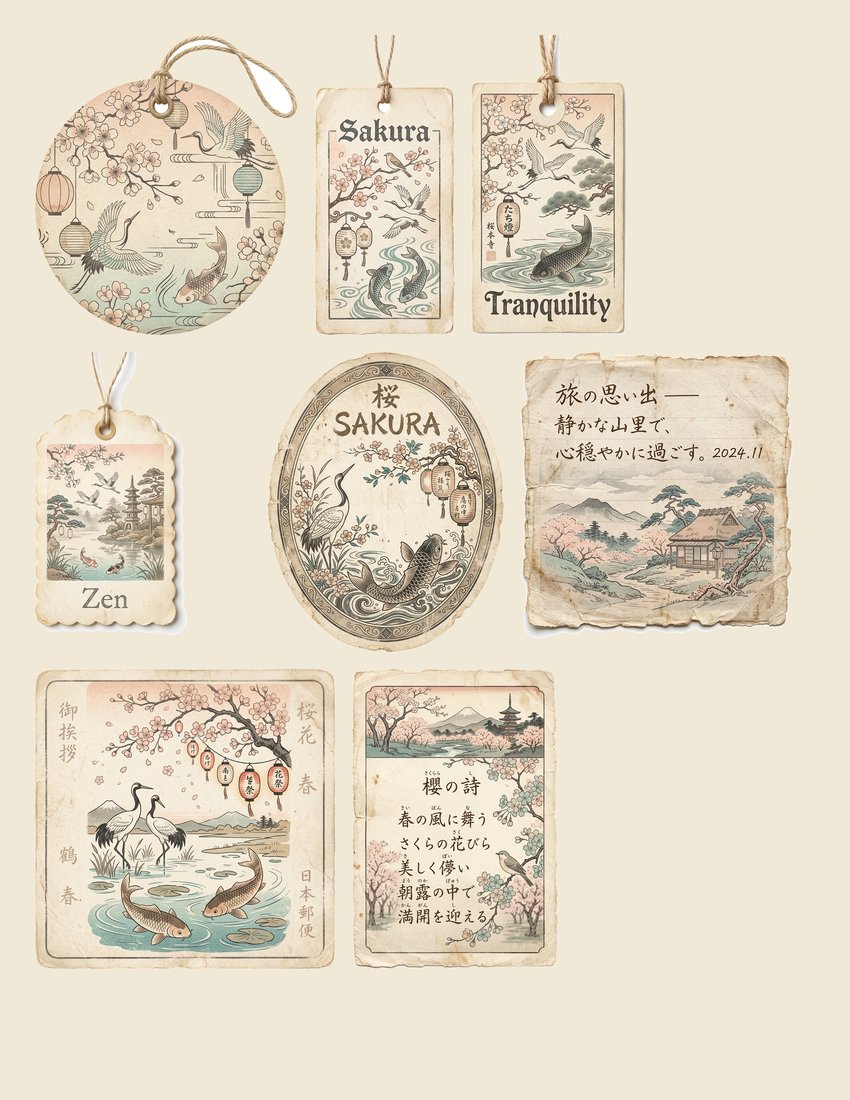 Sakura
たち燈
桜本寺
Tranquility
Zen
桜
SAKURA
旅の思い出 ——
静かな山里で、
心穏やかに過ごす。2024.11
御挨拶
鶴春
桜花春
日本郵便
花祭
櫻の詩
春の風に舞う
さくらの花びら
美しく儚い
朝露の中で
満開を迎える